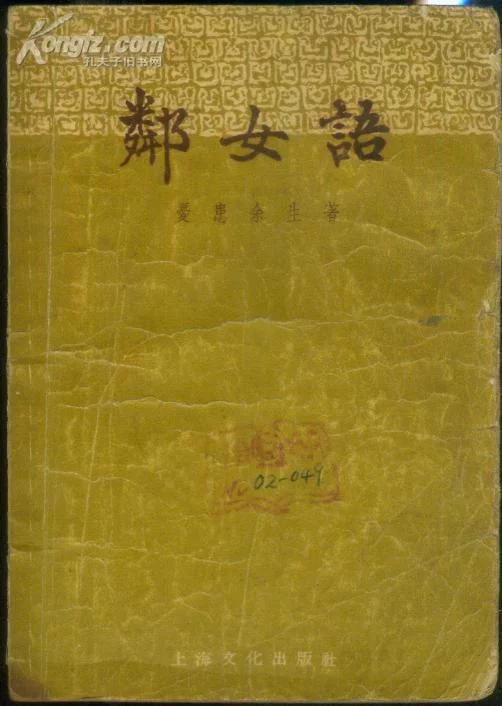 Kongfz.com
孔夫子旧书网
鄰女語
憂患余生著
02-049
上海文化出版社